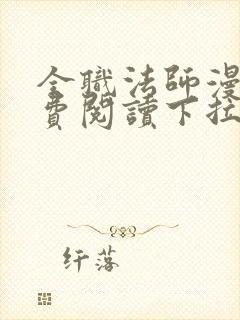 全職法師漫
費閱讀下拉
纤落